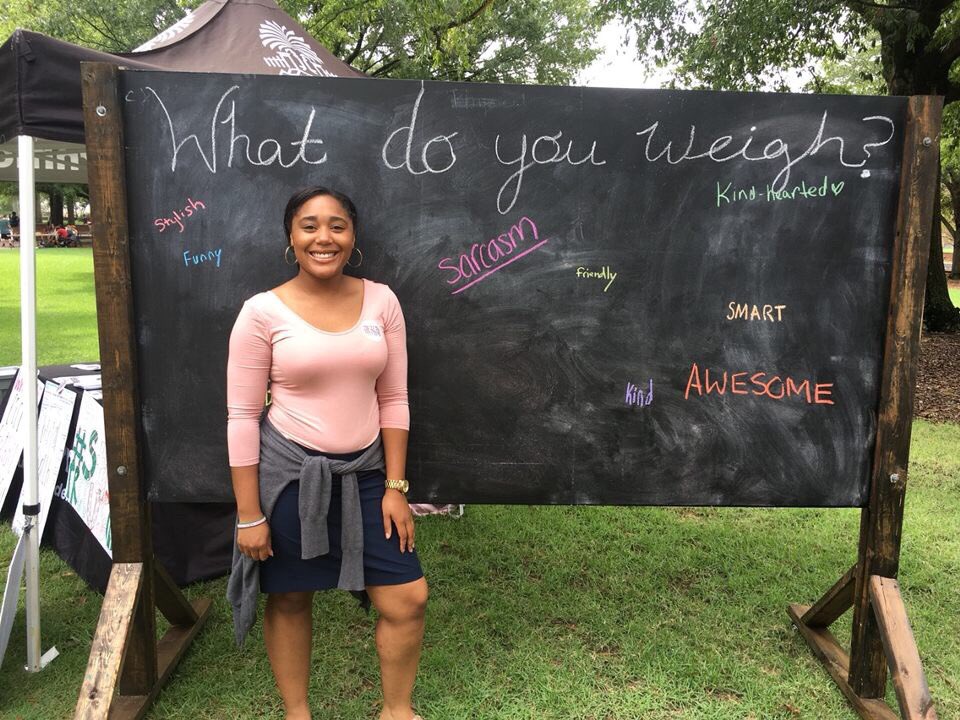 What do you weigh?
Kind-hearted♡
Stylish
Sarcasm
Funny
Friendly
SMART
Kind
AWESOME